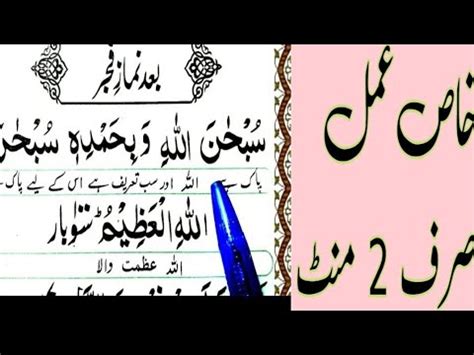 بعد نماز فجر
سُبْحٰنَ اللهِ وَبِحَمْدِهٖ سُبْحٰنَ
پاک ہے اللہ اور سب تعریف ہے اس کے لیے پاک
اللهِ الْعَظِيْمِ سَوْبار
اللہ عظمت والا
خاص عمل
صرف 2 منٹ